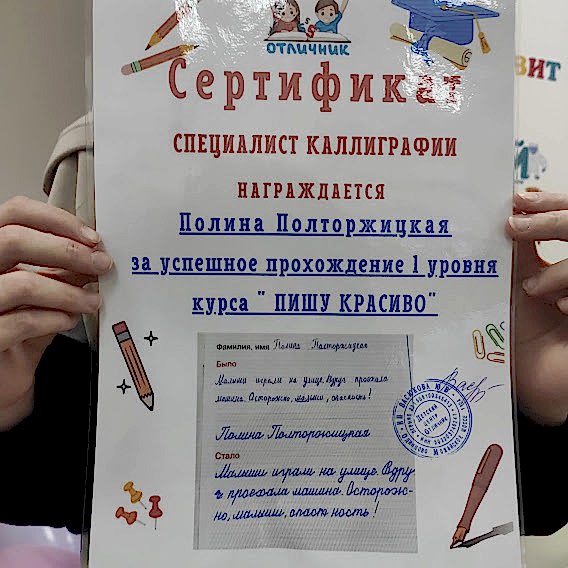 ОТЛИЧНИК
Сертификат
СПЕЦИАЛИСТ КАЛЛИГРАФИИ
НАГРАЖДАЕТСЯ
Полина Полторжицкая
за успешное прохождение 1 уровня
курса " ПИШУ КРАСИВО"
Фамилия, имя Полина Полторжицкая
Было
Малыши играли на улице. Вдруг проехала
машина. Осторожно, малыши, опасность!
Полина Полторжицкая
Стало
Малыши играли на улице. Вдру
г проехала машина. Осторож-
но, малыши, опаст ность!
Детский
центр
Отличник
ВИТ
Й